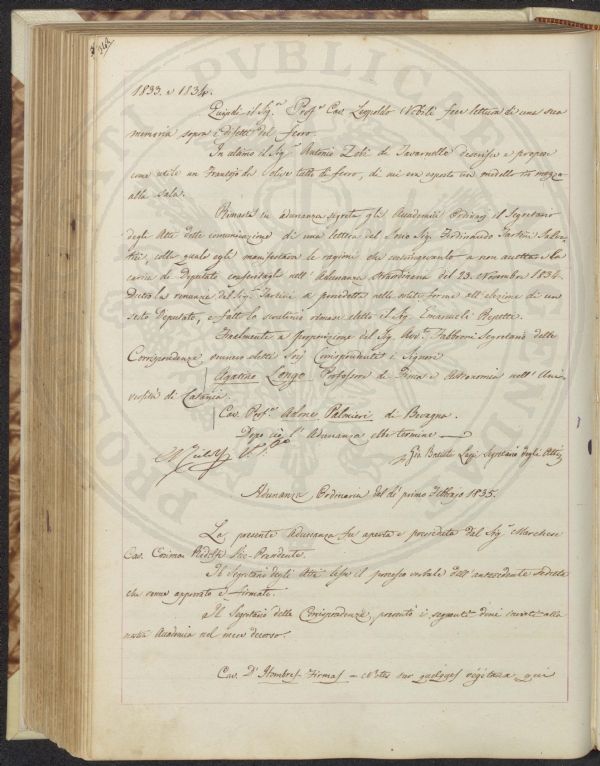 1833. e 1834.
Quindi il Sig.r Prof.r Cav. Leopoldo Nobili fece lettura di una sua
memoria sopra i difetti del ferro.
In ultimo il Sig. Antonio Zobi di Tavarnelle descrisse e propose
come utile un Frantojo da olive tutto di ferro, di cui era esposto un modello in mezzo
alla Sala.
Rimasti in adunanza segreta gli Accademici Ordinarj il Segretario
degli Atti dette comunicazione di una lettera del Socio Sig. Ferdinando Tartini Salva-
tici, colla quale egli manifestava le ragioni che consigliavanlo a non accettare la
carica di Deputato conferitagli nell'Adunanza straordinaria del 23. Novembre 1834.
Dietro la renunzia del Sig. Tartini si procedette nelle solite forme all'elezione di un
sesto Deputato, e fatto lo scrutinio rimase eletto il Sig. Emanuele Repetti.
Finalmente a proposizione del Sig. Avv. Fabbroni Segretario delle
Corrispondenze vennero eletti Socj Corrispondenti i Signori
Agatino Longo Professore di Fisica e Astronomia nell'Uni-
versità di Catania.
Cav. Prof.r Adone Palmieri di Bevagna.
Dopo ciò l'Adunanza ebbe termine
Segretario degli Atti
Adunanza Ordinaria del dì primo Febbrajo 1835.
La presente Adunanza fu aperta e preseduta dal Sig. Marchese
Cav. Cosimo Ridolfi Vice-Presidente.
Il Segretario degli Atti lesse il processo verbale dell'antecedente seduta
che venne approvato e firmato.
Il Segretario delle Corrispondenze, presentò i seguenti doni inviati alla
nostra Accademia nel mese decorso.
Cav. D'Hombres Firmas - Notes sur quelques végétaux qui
PUBLICAE